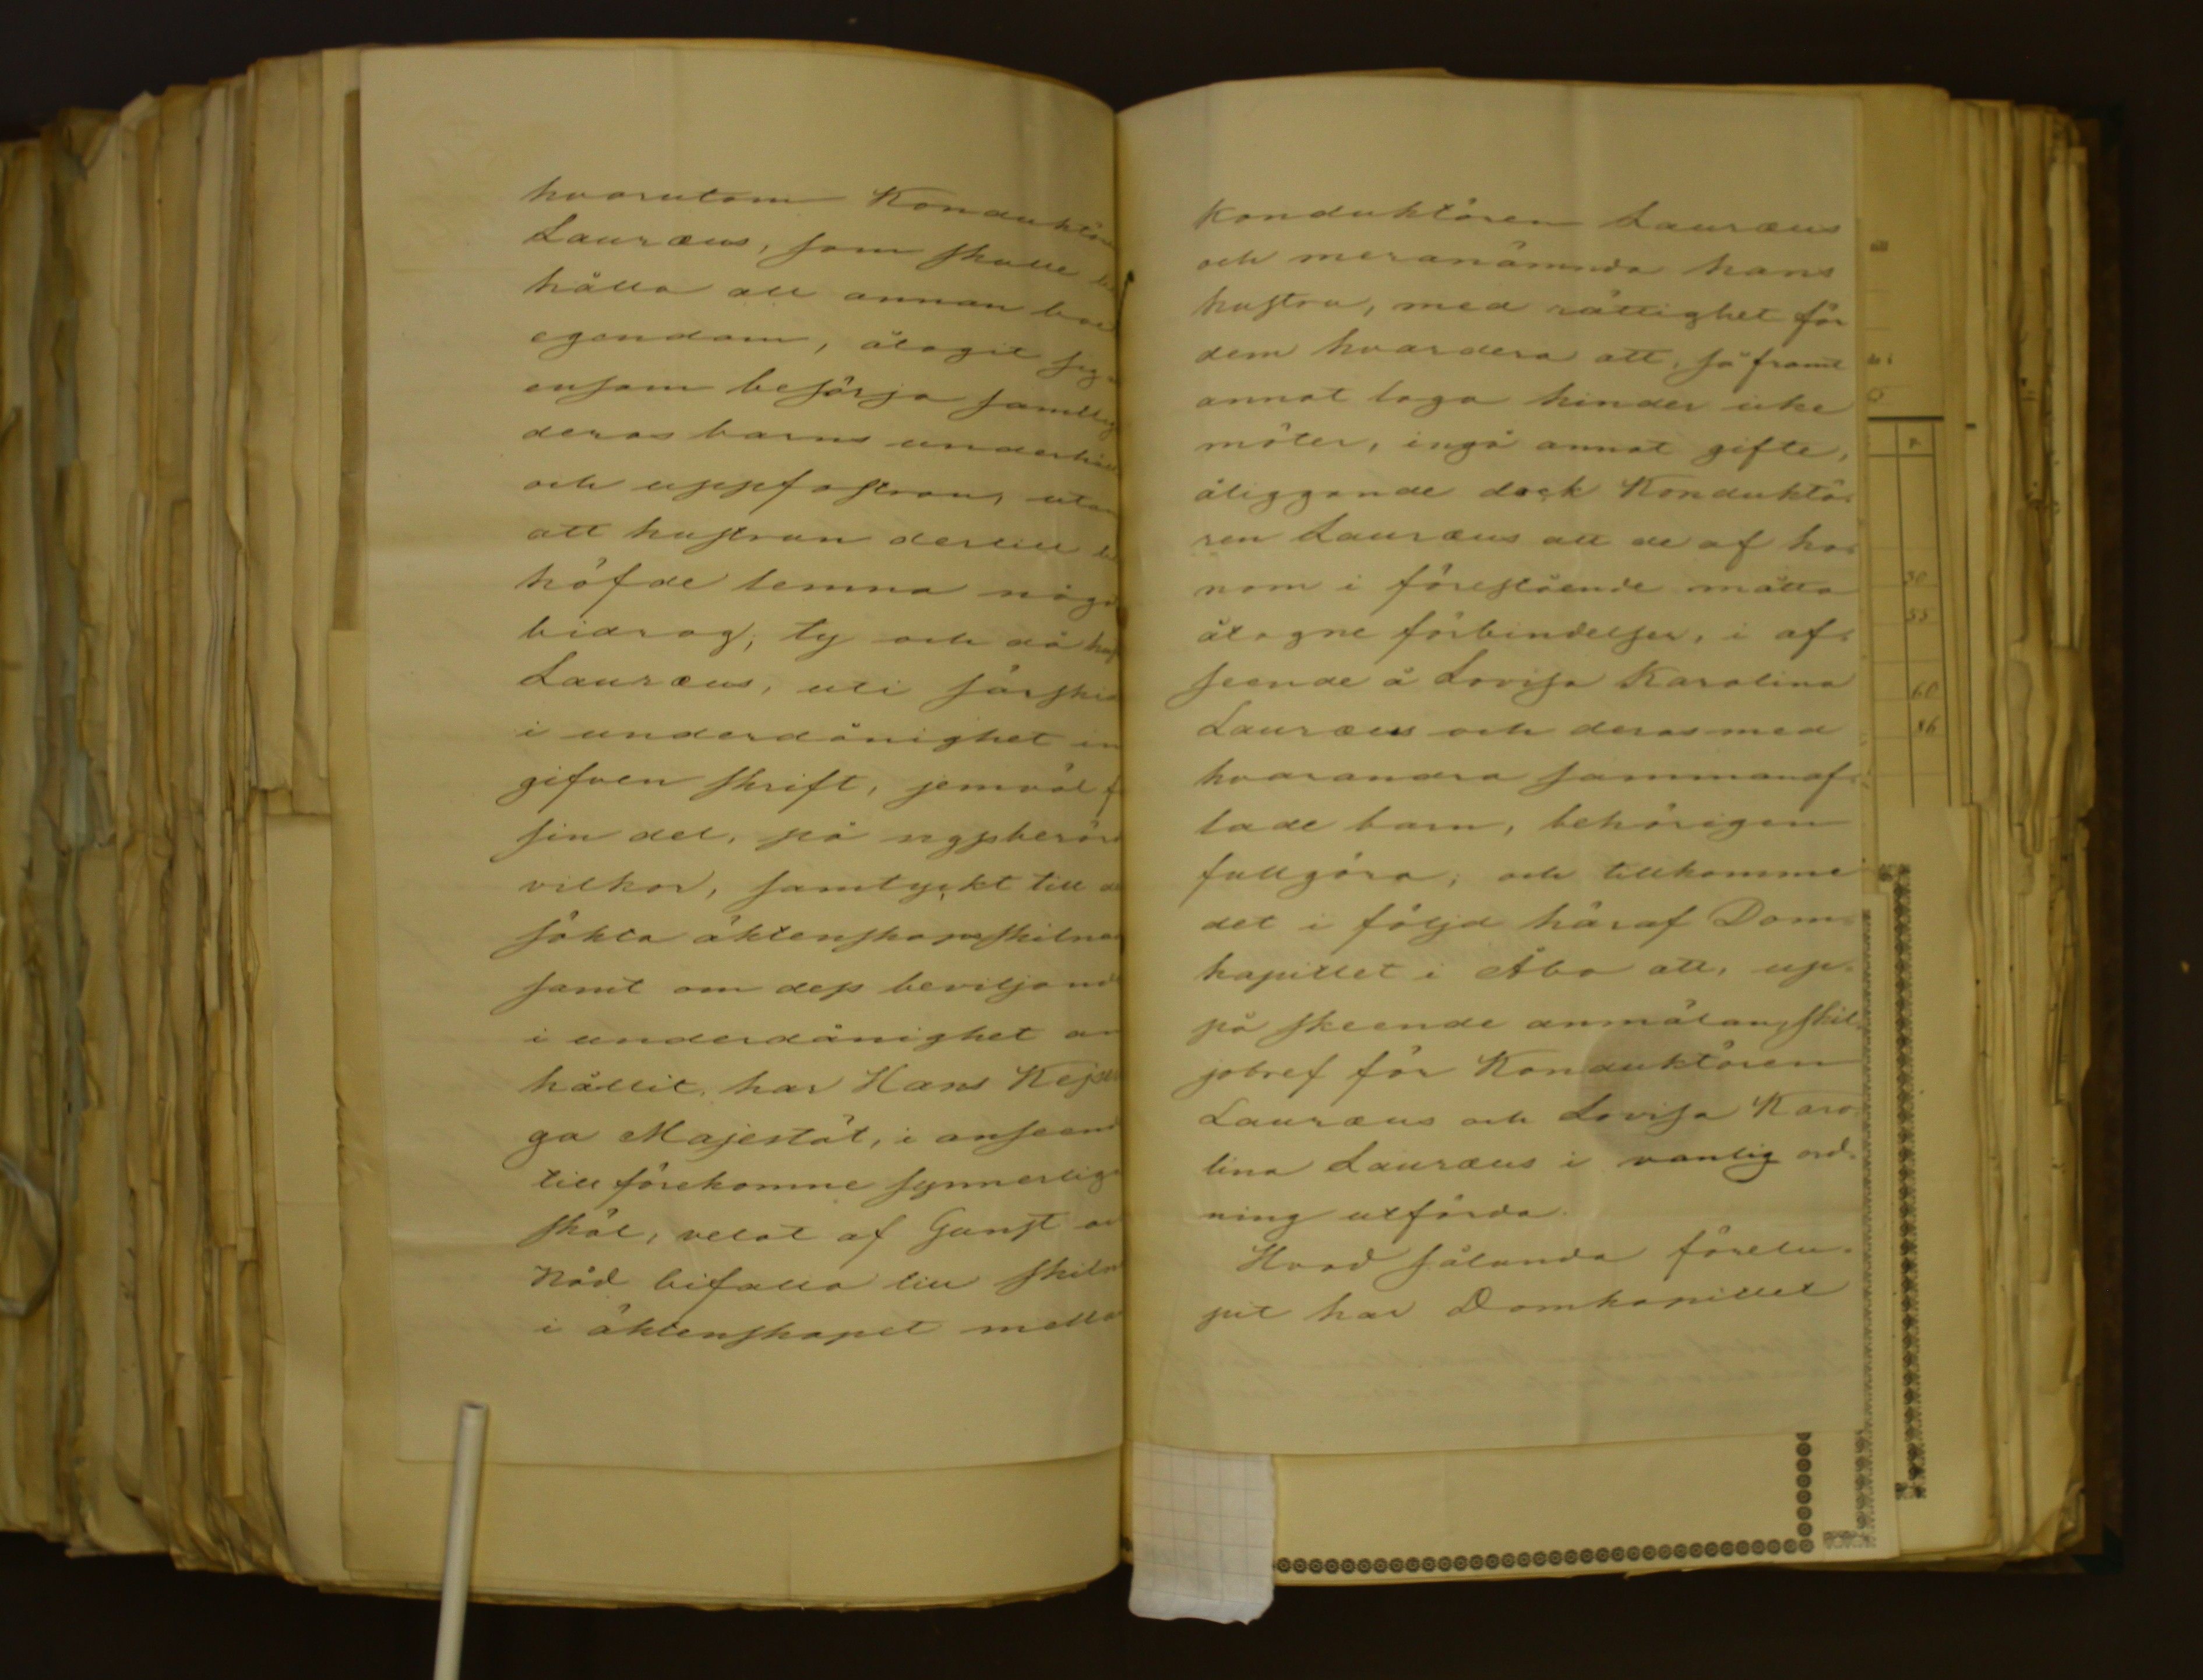 hvarutom Konduktöre
Lauræus, som skulle be
hålla all annan bo
egendom, åtagit sig
ensam besörja samtlig
deras barns underhåll
och uppfostran, utan
att hustrun dertill be
höfde lemna någo
bidrag; ty och då hust
Lauræus, uti särskild
i underdånighet in
gifven skrift, jemväl f
sin del, på nyssberörd
vilkor, samtyckt till de
sökta äktenskapsskilnad
samt om dess beviljand
i underdånighet an
hållit, har Hans Kejser
ga Majestät, i anseend
till förekomne synnerliga
skäl, velat af Gunst oc
Nåd bifalla till skilna
i äktenskapet mella
Konduktören Lauræus
och meranämnda hans
hustru, med rättighet för
dem hvardera att, så framt
annat laga hinder icke
möter, ingå annat gifte,
åliggande dock Konduktö-
ren Lauræus att de af ho-
nom i förestående måtto
åtagne förbindelser, i af-
seende å Lovisa Karolina
Lauræus och deras med
hvarandra sammanaf-
lade barn, behörigen
fullgöra; och tillkomme
det i följd häraf Dom-
kapitlet i Åbo att, up-
på skeende anmälan, skil-
jobref för Konduktören
Lauræus och Lovisa Karo-
lina Lauræus i vanlig ord-
ning utfärda.
Hvad sålunda förelu-
pit har Domkapitlet
p.
30
55
60
86